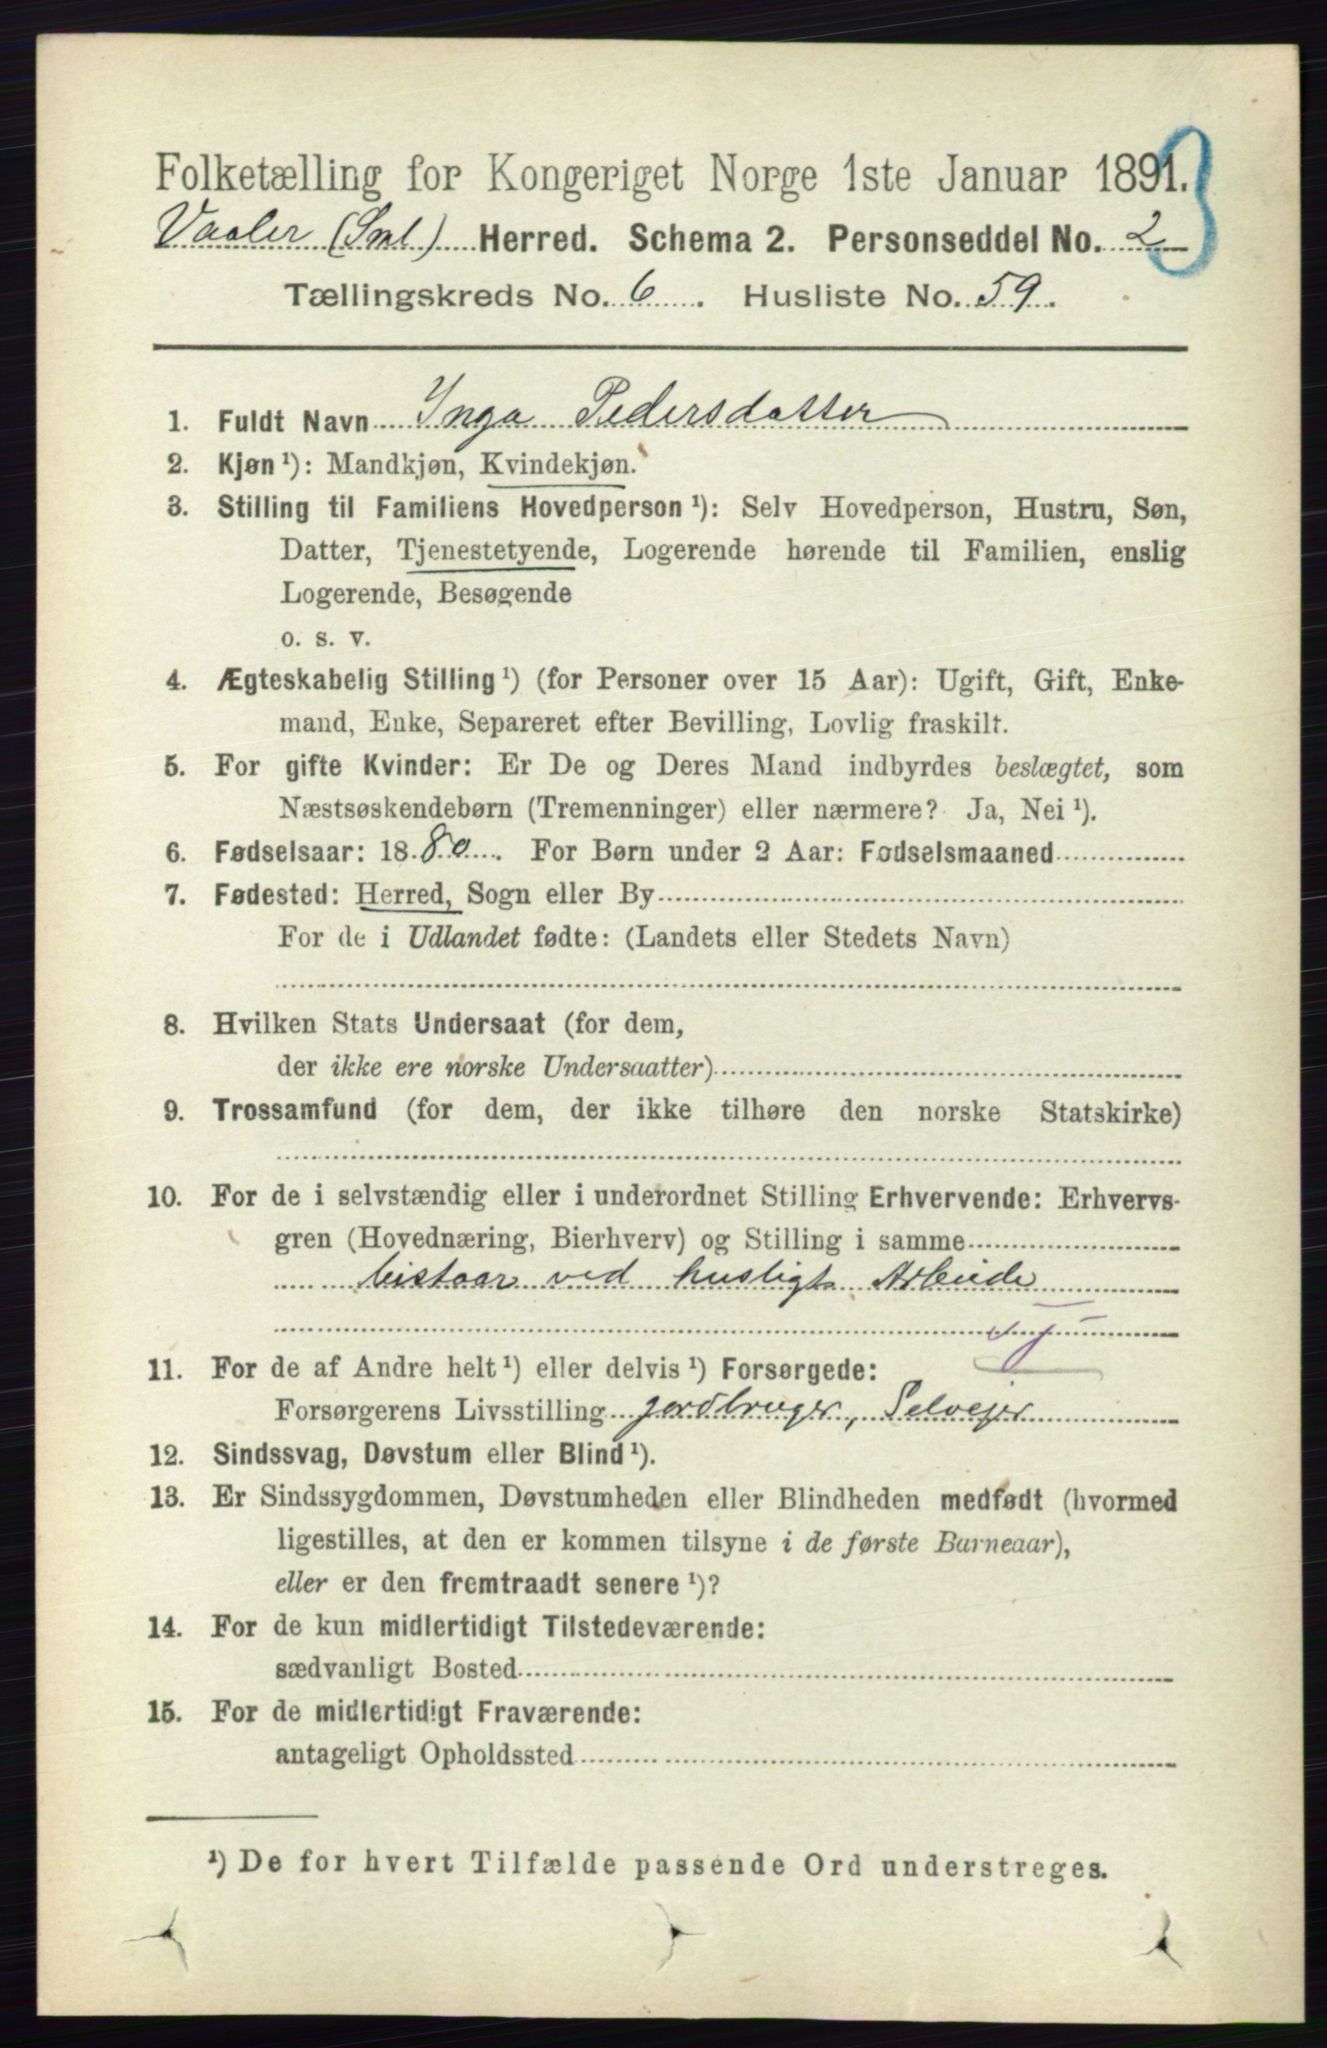 Folketælling for Kongeriget Norge 1ste Januar 1891.
3
Vaaler (Sml) Herred. Schema 2. Personseddel No. 2
Tællingskreds No. 6. Husliste No. 59.
1. Fuldt Navn Inga Pedersdatter
2. Kjøn¹): Mandkjøn, Kvindekjøn.
3. Stilling til Familiens Hovedperson¹): Selv Hovedperson, Hustru, Søn,
Datter, Tjenestetyende, Logerende hørende til Familien, enslig
Logerende, Besøgende
o. s. v.
4. Ægteskabelig Stilling¹) (for Personer over 15 Aar): Ugift, Gift, Enke-
mand, Enke, Separeret efter Bevilling, Lovlig fraskilt.
5. For gifte Kvinder: Er De og Deres Mand indbyrdes beslægtet, som
Næstsøskendebørn (Tremenninger) eller nærmere? Ja, Nei¹).
6. Fødselsaar: 1880. For Børn under 2 Aar: Fødselsmaaned
7. Fødested: Herred, Sogn eller By
For de i Udlandet fødte: (Landets eller Stedets Navn)
8. Hvilken Stats Undersaat (for dem,
der ikke ere norske Undersaatter)
9. Trossamfund (for dem, der ikke tilhøre den norske Statskirke)
10. For de i selvstændig eller i underordnet Stilling Erhvervende: Erhvervs-
gren (Hovednæring, Bierhverv) og Stilling i samme
bistaar ved husligt Arbeide
11. For de af Andre helt¹) eller delvis¹) Forsørgede:
Forsørgerens Livsstilling jordbruger, Selvejer
12. Sindssvag, Døvstum eller Blind¹).
13. Er Sindssygdommen, Døvstumheden eller Blindheden medfødt (hvormed
ligestilles, at den er kommen tilsyne i de første Barneaar),
eller er den fremtraadt senere¹)?
14. For de kun midlertidigt Tilstedeværende:
sædvanligt Bosted
15. For de midlertidigt Fraværende:
antageligt Opholdssted
¹) De for hvert Tilfælde passende Ord understreges.